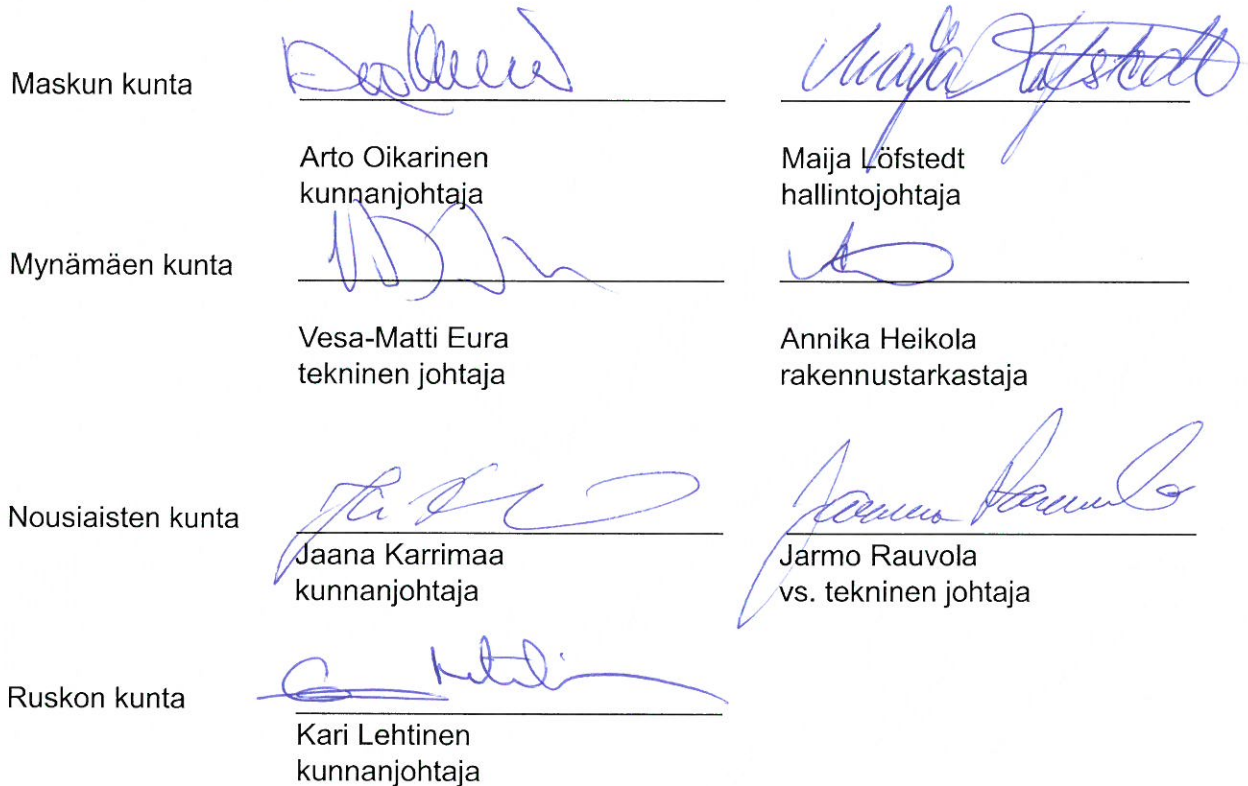 Maskun kunta
Maija Löfstedt
Arto Oikarinen
kunnanjohtaja
Maija Löfstedt
hallintojohtaja
Mynämäen kunta
Vesa-Matti Eura
tekninen johtaja
Annika Heikola
rakennustarkastaja
Nousiaisten kunta
Jaana Karrimaa
kunnanjohtaja
Jarmo Rauvola
vs. tekninen johtaja
Ruskon kunta
Kari Lehtinen
kunnanjohtaja